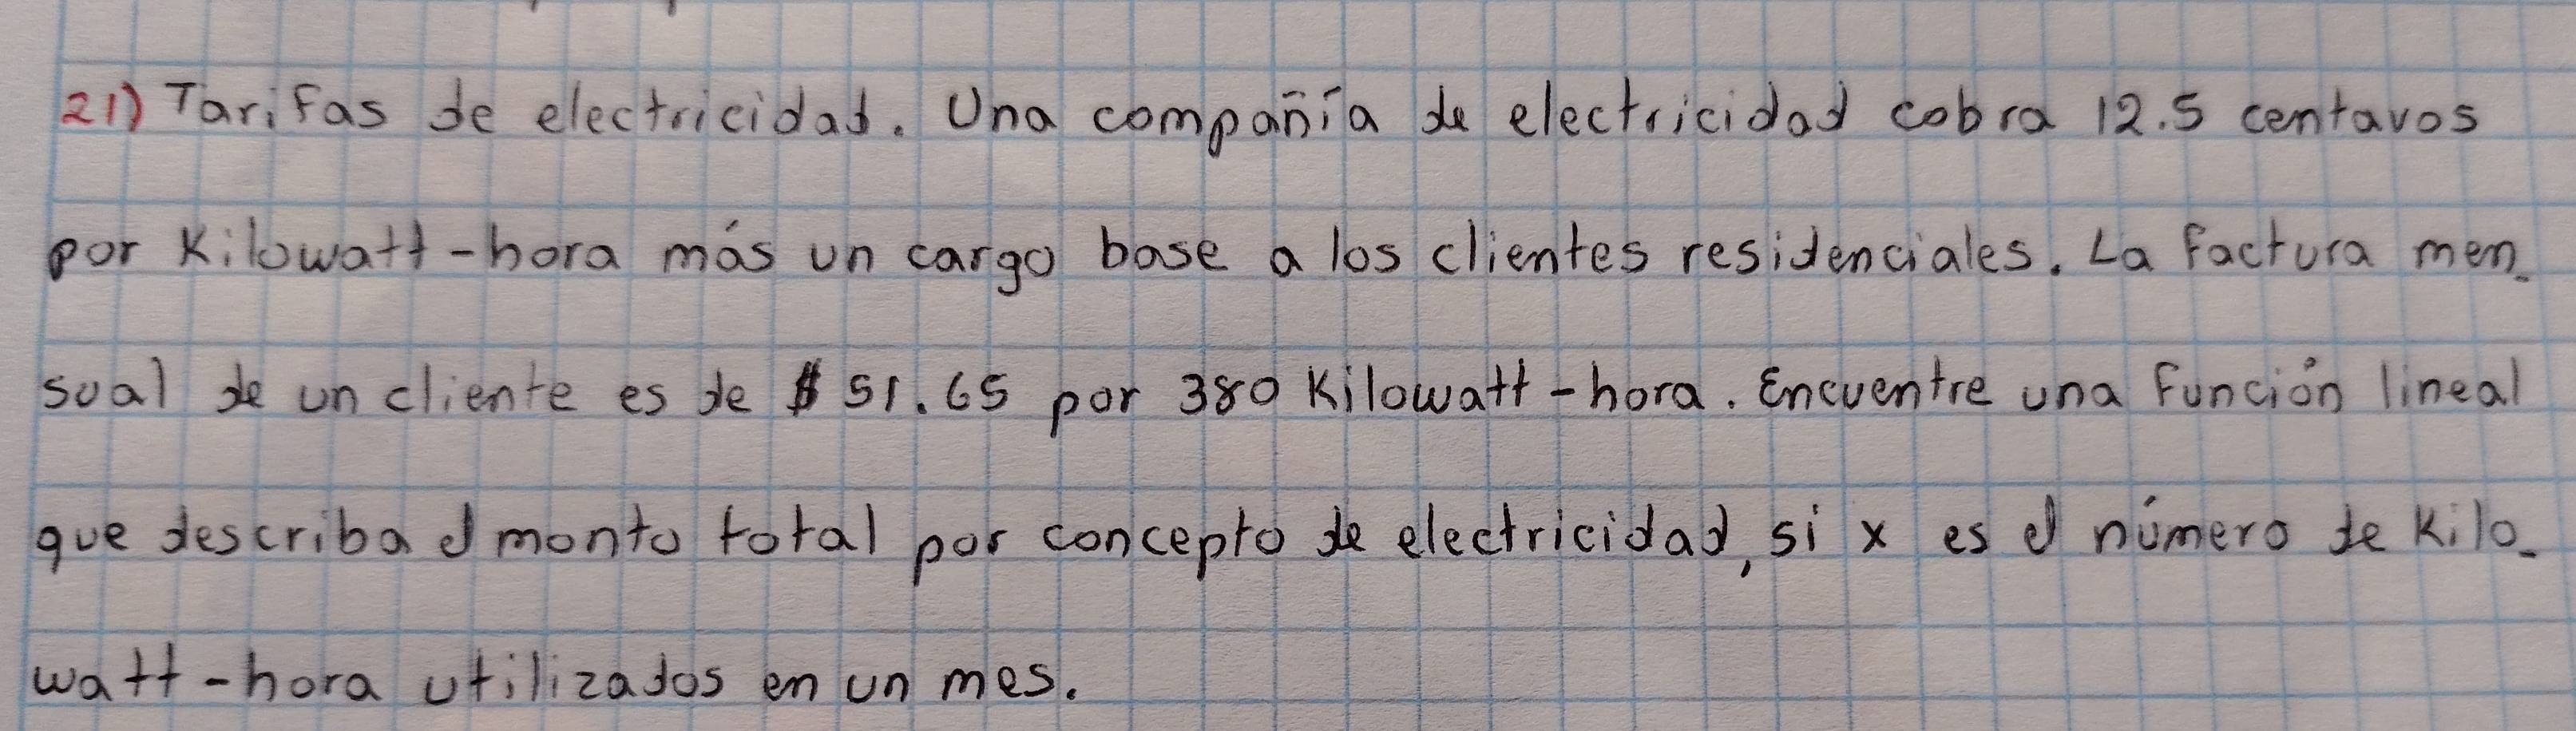 21) Tarifas de electricidad. Una compañía de electricidad cobra 12.5 centavos
por Kilowatt-hora más un cargo base a los clientes residenciales. La factura men-
sual de un cliente es de $ 51.65 por 380 Kilowatt-hora. Encuentre una función lineal
que describa el monto total por concepto de electricidad, si x es el número de Kilo-
watt-hora utilizados en un mes.